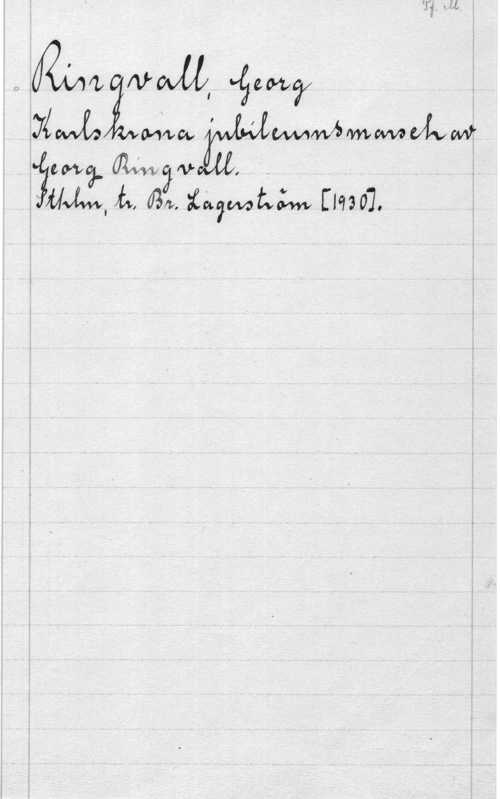 Tj. M.
Ringvall, Georg
Karlskrona jubileumsmarsch av
Georg Ringvall.
Sthlm, tr. Br. Lagerström [1930].